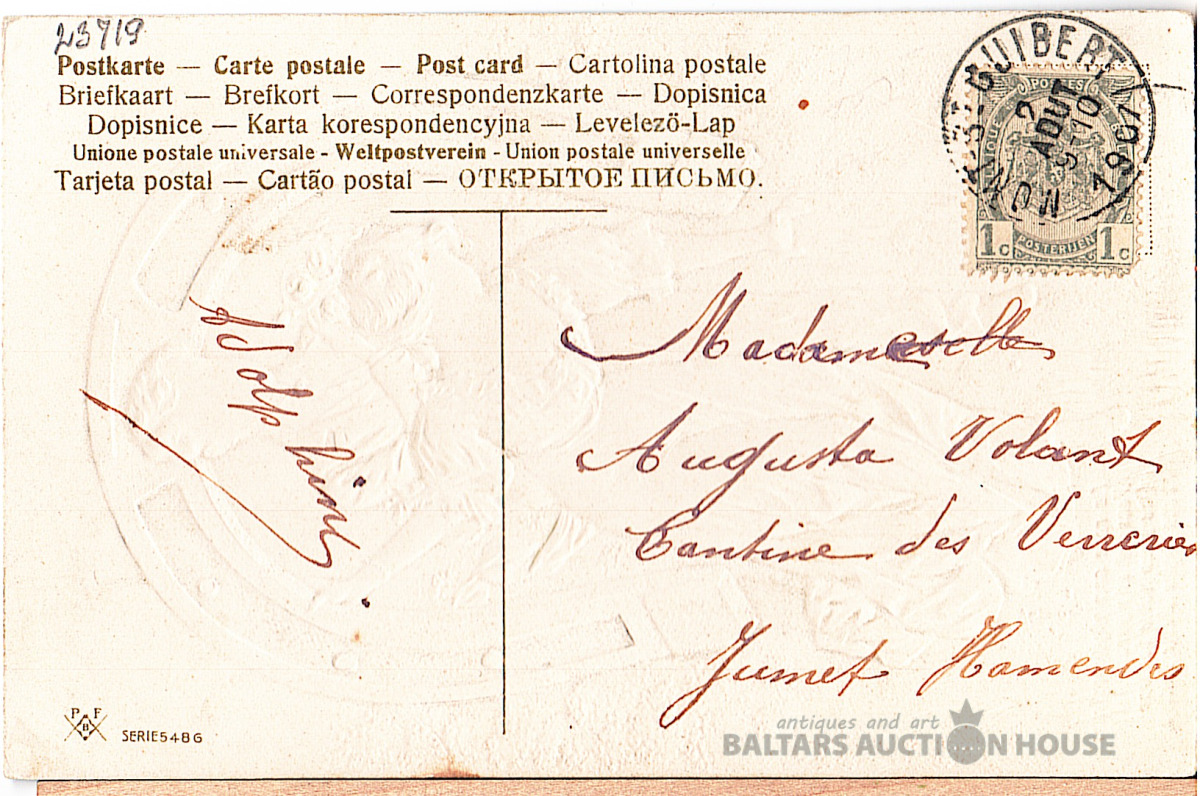 23719
Postkarte — Carte postale — Post card — Cartolina postale
Briefkaart — Brefkort — Correspondenzkarte — Dopisnica
Dopisnice — Karta korespondencyjna — Levelező-Lap
Unione postale universale - Weltpostverein - Union postale universelle
Tarjeta postal — Cartão postal — ОТКРЫТОЕ ПИСЬМО.
GUIBERT
2
AOUT
9-10
1907
POSTES
1c POSTERIJEN 1c
Mademoiselle
Augusta Volant
Cantine des Verreries
Jumet Hamendes
P F
B
SERIE 5486
antiques and art
BALTARS AUCTION HOUSE